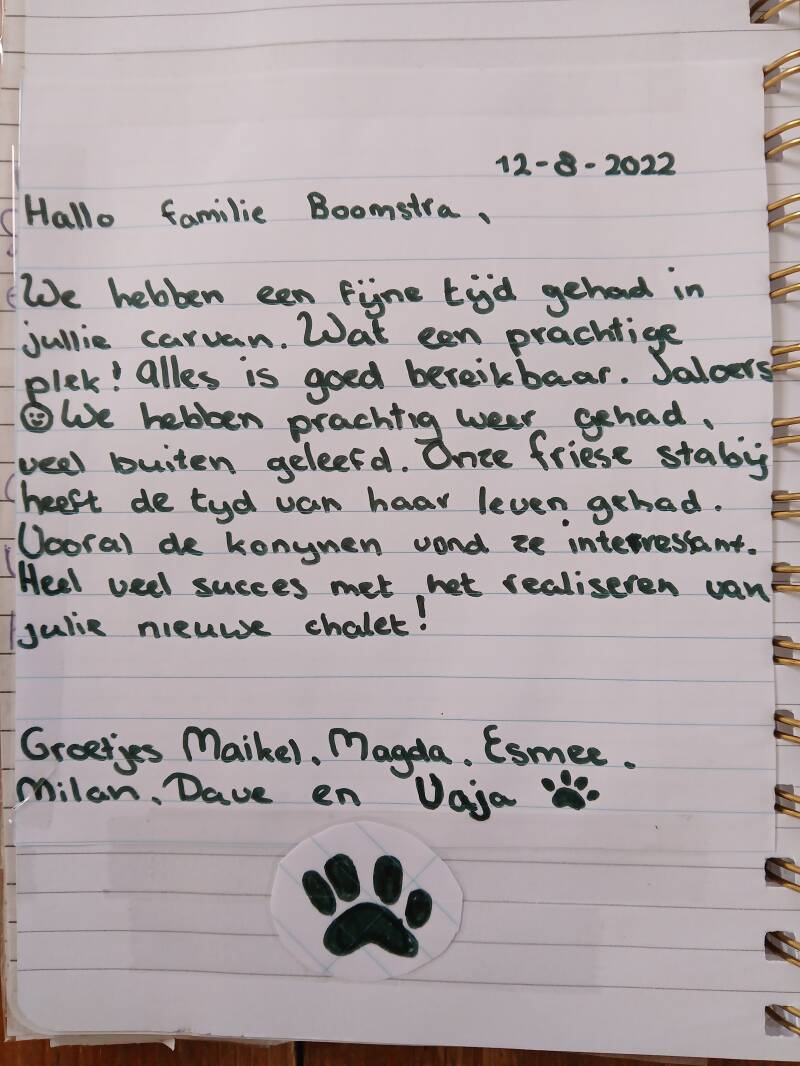 12-8-2022
Hallo familie Boomstra,
We hebben een fijne tijd gehad in
jullie carvan. Wat een prachtige
plek! Alles is goed bereikbaar. Jaloers
We hebben prachtig weer gehad,
veel buiten geleefd. Onze friese stabij
heeft de tyd van haar leven gehad.
Vooral de konynen vond ze interressant.
Heel veel succes met het realiseren van
julie nieuwe chalet!
Groetjes Maikel, Magda, Esmee,
Milan, Dave en Vaja